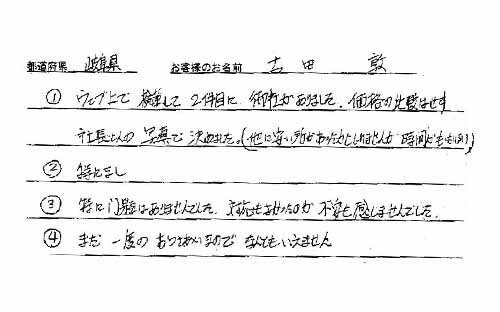 都道府県 岐阜県 お客様のお名前 吉田 敦
① ウェブ上で 検索して 2件目に 御社がありました。価格の比較はせず
社長さんの 写真で 決めました。(他に安い所があったかもしれませんが 時間がもったい
② 特になし
③ 特に問題はありませんでした。対応もよかったので 不安も感じませんでした。
④ まだ 一度の おつきあいなので なんともいえません